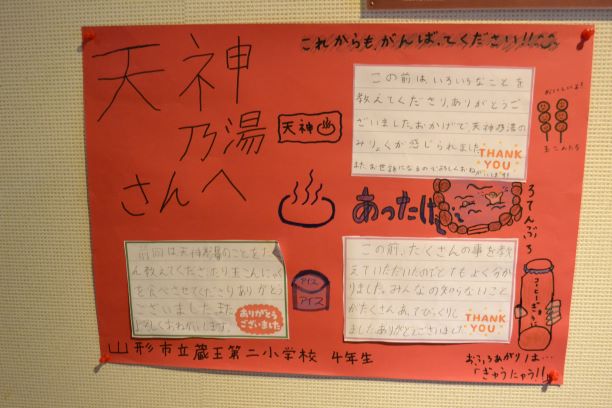 天神
乃湯
さんへ
これからも、がんばってください!!
この前は、いろいろなことを
教えてくださりありがとうご
ざいました。おかげで天神乃湯の
みりょくが感じられました。
また、お世話になるのでよろしくおねがいします!!
THANK
YOU
おいしいよ!
玉こんにゃく
天神
あったけ
ろてんぶろ
前回は天神乃湯のことをた
教えてくださったり玉こんにゃく
を食べさせてくださりありがと
ございました。また、
よろしくおねがいします。
ありがとう
ございました
アイス
アイス
この前、たくさんの事を教
えていただいたのでとてもよく分か
りました。みんなの知らないこと
がたくさんあってびっくりし
ました。ありがとうございました。
THANK
YOU
コーヒーぎゅうにゅう
山形市立蔵王第二小学校 4年生
おふろあがりは…
「ぎゅうにゅう!!」